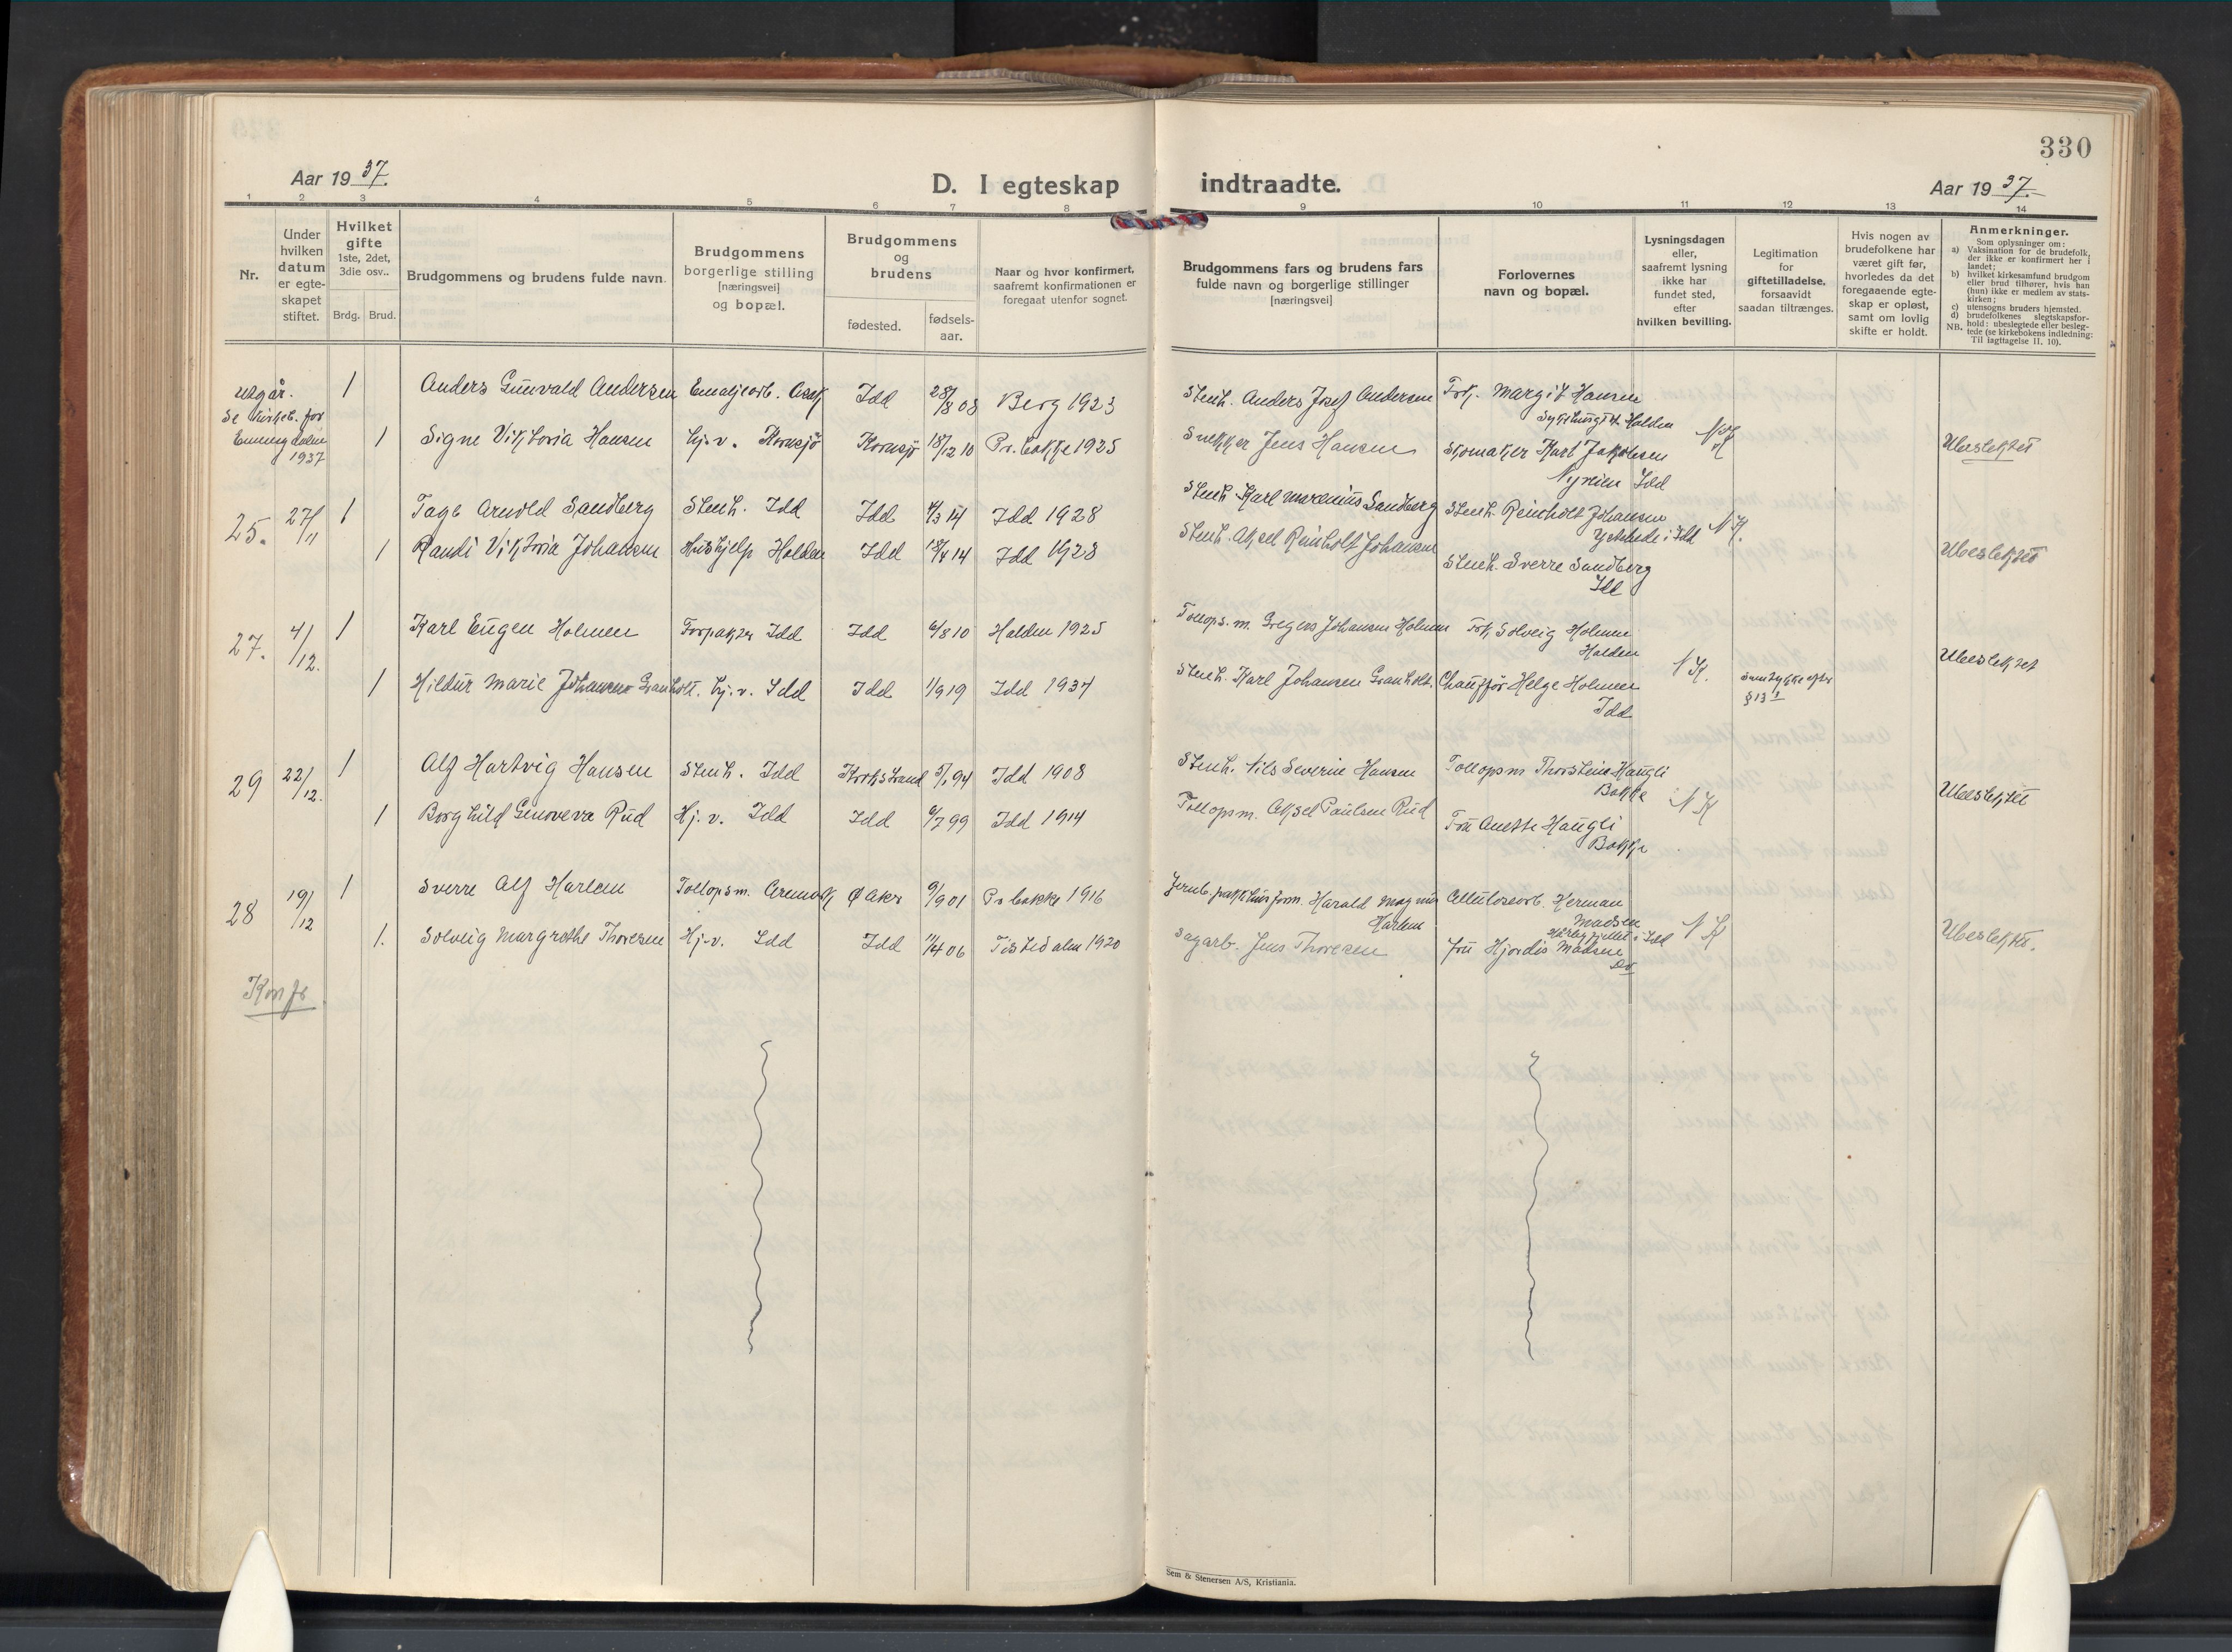 330
Aar 1937.
D. I egteskap indtraadte.
Aar 1937.
1 2 3 4 5 6 7 8 9 10 11 12 13 14
Nr.
Under hvilken datum er egte-skapet stiftet.
Hvilket gifte 1ste, 2det, 3die osv..
Brdg. Brud.
Brudgommens og brudens fulde navn.
Brudgommens borgerlige stilling [næringsvei] og bopæl.
Brudgommens og brudens
fødested.
fødsels-aar.
Naar og hvor konfirmert, saafremt konfirmationen er foregaat utenfor sognet.
Brudgommens fars og brudens fars fulde navn og borgerlige stillinger [næringsvei]
Forlovernes navn og bopæl.
Lysningsdagen eller, saafremt lysning ikke har fundet sted, efter hvilken bevilling.
Legitimation for giftetilladelse, forsaavidt saadan tiltrænges.
Hvis nogen av brudefolkene har været gift før, hvorledes da det foregaaende egte-skap er opløst, samt om lovlig skifte er holdt.
Anmerkninger.
Som oplysninger om:
a) Vaksination for de brudefolk, der ikke er konfirmert her i landet;
b) hvilket kirkesamfund brudgom eller brud tilhører, hvis han (hun) ikke er medlem av stats-kirken;
c) utensogns bruders hjemsted.
d) brudefolkenes slegtskapsfor-hold: ubeslegtede eller besleg-tede (se kirkebokens indledning:
NB. Til iagttagelse II. 10).
Utgår.
Se kirkeb. for
Enningdalen
1937
1 Anders Gunvald Andersen Emaljearb. Asak Idd 28/8 08 Berg 1923 Stenh. Anders Josef Andersen Frk. Margit Hansen
Sykehuset Halden
1 Signe Viktoria Hansen hj.v. Kornsjø Kornsjø 18/12 10 Pr.bakke 1925 Snekker Jens Hansen Skomaker Karl Jakobsen N.K. Ubeslektet
Idd
25. 27/11 1 Tage Arnold Sandberg Stenh. Idd Idd 4/3 14 Idd 1928 Stenh. Karl Marenius Sandberg Stenh. Reinholt Johansen
Ystehede i Idd N.K.
1 Randi Viktoria Johansen Hushjelp Halden Idd 18/4 14 Idd 1928 Stenh. Aksel Reinholt Johansen Stenh. Sverre Sandberg Ubeslektet
Idd
27. 4/12. 1 Karl Eugen Holmen Forpakter Idd Idd 6/8 10 Halden 1925 Tollops.m. Gregers Johansen Holmen Frk Solveig Holmen
Halden Ubeslektet
1 Hildur Marie Johansen Granholt. hj.v. Idd Idd 1/9 19 Idd 1934 Stenh. Karl Johansen Granholt. Chauffør Helge Holmen N.K. Samtykke efter
§ 13 1
Idd
29 22/12. 1 Alf Hartvig Hansen Stenh. Idd Krokstrand 5/1 94 Idd 1908 Stenh. Nils Severin Hansen Tollopsm Thorstein Haugli
Bakke N.K. Ubeslektet
1 Borghild Genoveva Rud Hj.v. Idd Idd 6/7 99 Idd 1914 Tollopsm. Aksel Paulsen Rud Fru Anette Haugli
Bakke
28 19/12 1 Sverre Alf Harlem Tollopsm. Aremark Ø Aker 9/9 01 Pr bakke 1916 Jernb. pakkhusform. Harald Magnus Harlem Cellulosearb. Herman
Madsen
i Idd N.K.
1. Solveig Margrethe Thoresen Hj.v. Idd Idd 11/4 06 Tistedalen 1920 Sagarb. Jens Thoresen Fru Hjordis Madsen Ubeslektet.
Do
Konf
Sem & Stenersen A/S, Kristiania.